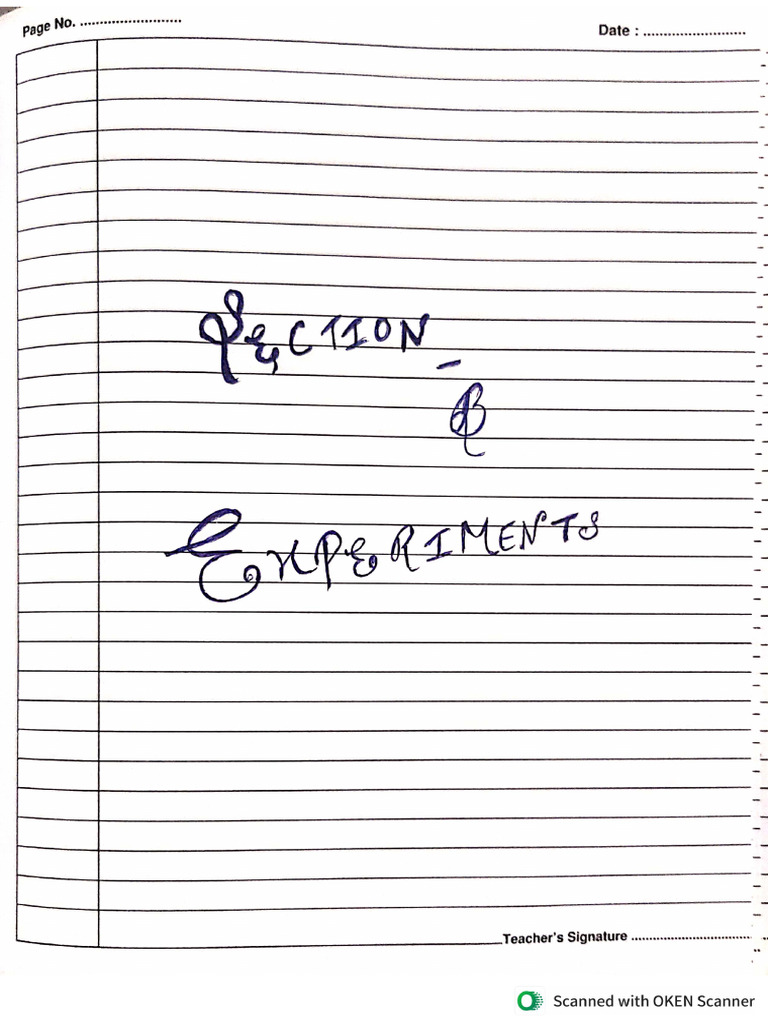 Page No. ..........................
Date : ..........................
SECTION -
B
EXPERIMENTS
Teacher's Signature ..................................
Scanned with OKEN Scanner